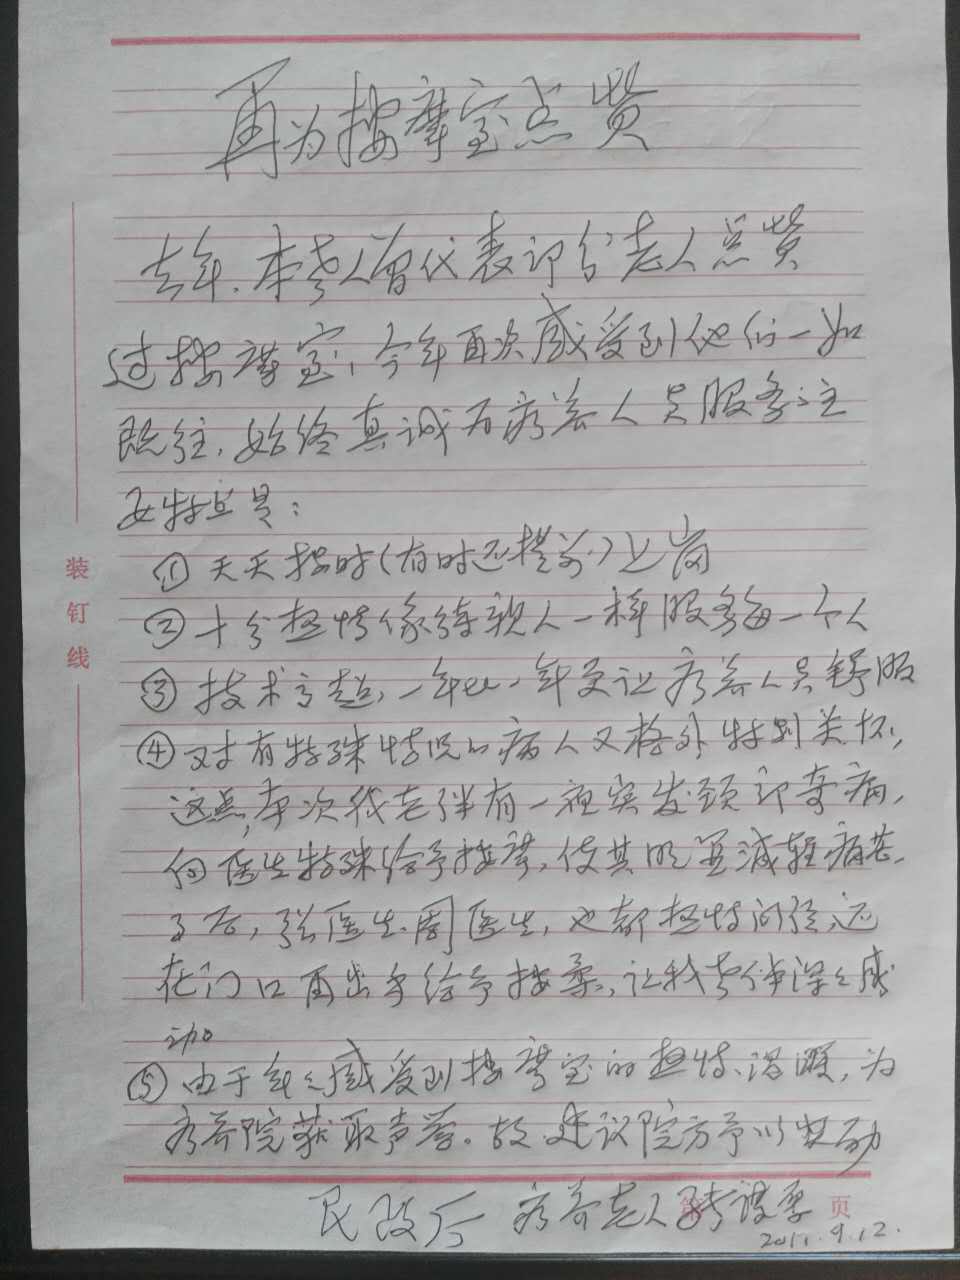 再为按摩室点赞
去年、本老人曾代表部分老人点赞
过按摩室，今年再次感受到他们一如
既往，始终真诚为疗养人员服务主
要特点是：
①天天按时(有时还提前)上岗
②十分热情像待亲人一样服务每一个人
③技术高超，一年比一年更让疗养人员舒服
④对有特殊情况的病人又格外特别关怀，
这点，本次我老伴有一夜突发颈部奇病，
向医生特殊给予按摩，使其明显减轻病苦，
了后，张医生、周医生，也都热情问候，还
在门口再出手给予按柔，让我老伴深深感
动。
⑤由于年年感受到按摩室的热情、温暖，为
疗养院获取声誉。故建议院方予以奖励
民政厅 疗养老人
2011.9.12.
装
钉
线
第 页